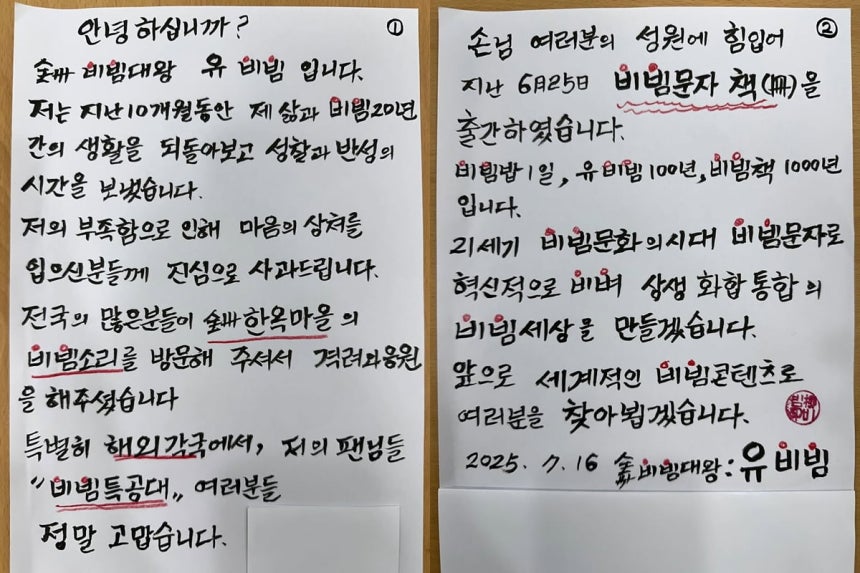 안녕하십니까?
①
비빔대왕 유 비빔 입니다.
저는 지난10개월동안 제 삶과 비빔20년
간의 생활을 되돌아보고 성찰과 반성의
시간을 보냈습니다.
저의 부족함으로 인해 마음의 상처를
입으신분들께 진심으로 사과드립니다.
전국의 많은분들이 한옥마을의
비빔소리를 방문해 주셔서 격려와응원
을 해주셨습니다
특별히 해외각국에서, 저의 팬님들
"비빔특공대" 여러분들
정말 고맙습니다.
②
손님 여러분의 성원에 힘입어
지난 6月25日 비빔문자 책(冊)을
출간하였습니다.
비빔밥1일, 유비빔100년, 비빔책1000년
입니다.
21세기 비빔문화의시대 비빔문자로
혁신적으로 비벼 상생 화합통합의
비빔세상을 만들겠습니다.
앞으로 세계적인 비빔콘텐츠로
여러분을 찾아뵙겠습니다.
2025. 7. 16 비빔대왕: 유비빔